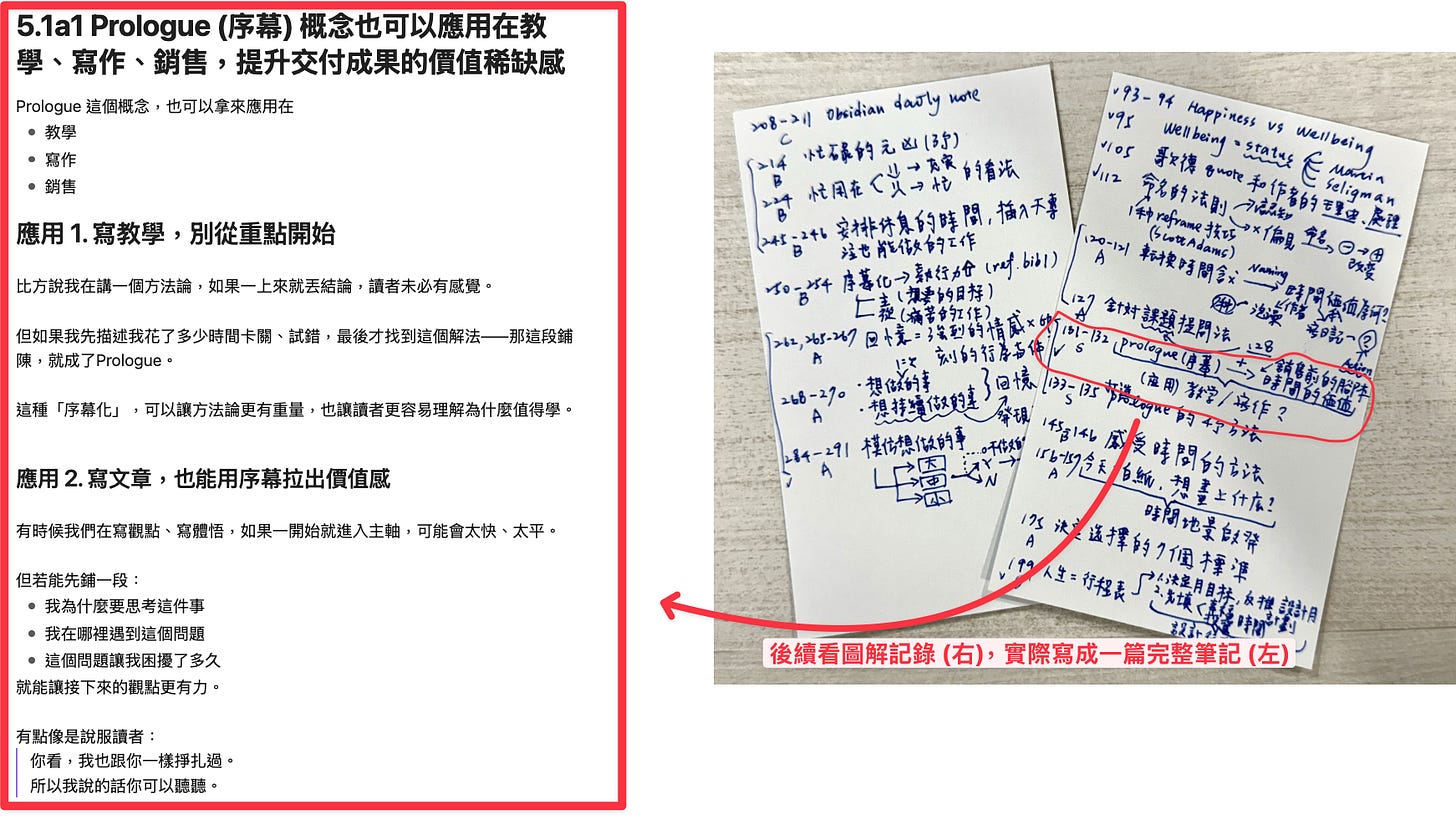 5.1a1 Prologue (序幕) 概念也可以應用在教
學、寫作、銷售，提升交付成果的價值稀缺感
Prologue 這個概念，也可以拿來應用在
• 教學
• 寫作
• 銷售
應用 1. 寫教學，別從重點開始
比方說我在講一個方法論，如果一上來就丟結論，讀者未必有感覺。
但如果我先描述我花了多少時間卡關、試錯，最後才找到這個解法——那這段鋪
陳，就成了Prologue。
這種「序幕化」，可以讓方法論更有重量，也讓讀者更容易理解為什麼值得學。
應用 2. 寫文章，也能用序幕拉出價值感
有時候我們在寫觀點、寫體悟，如果一開始就進入主軸，可能會太快、太平。
但若能先鋪一段：
• 我為什麼要思考這件事
• 我在哪裡遇到這個問題
• 這個問題讓我困擾了多久
就能讓接下來的觀點更有力。
有點像是說服讀者：
你看，我也跟你一樣掙扎過。
所以我說的話你可以聽聽。
208-211 Obsidian daily note
C
214 忙碌的元凶 (3多)
B
224 忙用在
B
的看法
245-246 安排休息的時間，插入不專
B 注也能做的工作
250-254 序幕化→執行力 (ref.bib1)
B
主 (想要的目標)
(痛苦的工作)
262,265-267 回憶=強烈的情感×
A
刻的行為
268-270 ·想做的事
A ·想持續做的事
回憶
發現
284-291 模仿想做的事
A
大
中
小
Y
N
v93-94 Happiness vs Wellbeing
v95 Wellbeing = status
Martin
Seligman
v105 歌德 quote 和作者的理由、處理
v112 命名的法則
認知
偏見
1種 reframe 技巧
(Scott Adams)
命名
改變
120-121 轉換時間
A
Naming
時間價值為何?
127 針對課題提問法
A
128
131-132 prologue (序幕) + 銷售前的腳本
S
時間的価值
(應用) 教學/寫作?
133-135 打造 prologue 的 4个方法
S
145-146 感受時間的方法
B
156-157 今天=白紙，想畫上什麼?
A
時間地景啟發
175 決定選擇的7個標準
A
199 人生=行程表
1.決定月目標，反推設計月
計劃
2.先填
時間
後續看圖解記錄 (右)，實際寫成一篇完整筆記 (左)